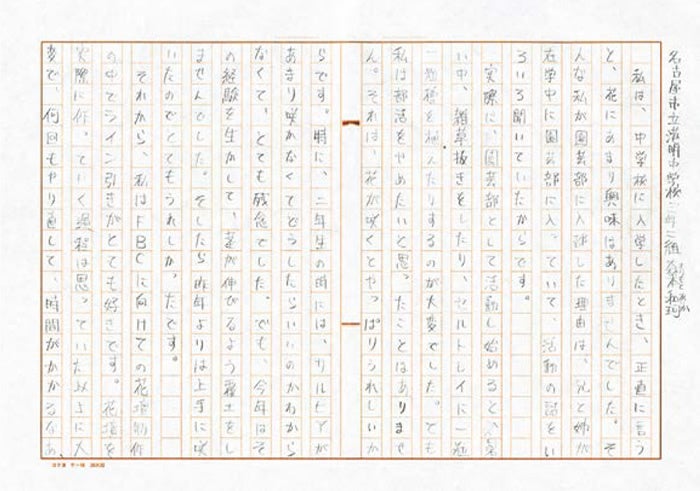 名古屋市立滝明中学校 三年二組
私は、中学校に入学したとき、正直に言う
と、花にあまり興味はありませんでした。そ
んな私が園芸部に入部した理由は、兄と姉が
在学中に園芸部に入っていて、活動の話をい
ろいろ聞いていたからです。
実際に、園芸部として活動し始めると、暑
い中、雑草抜きをしたり、セルトレイに一粒
一粒種を植えたりするのが大変でした。でも
私は部活をやめたいと思ったことはありませ
ん。それは、花が咲くとやっぱりうれしいか
らです。特に、二年生の時には、サルビアが
あまり咲かなくてどうしたらいいのかわから
なくて、とても残念でした。でも、今年はそ
の経験を生かして、茎が伸びるよう覆土をし
ませんでした。そしたら昨年よりは上手に咲
いたのでとてもうれしかったです。
それから、私はFBCに向けての花壇制作
の中でライン引きがとても好きです。花壇を
実際に作っていく過程は思っていた以上に大
変で、何回もやり直して、時間がかかるなあ、